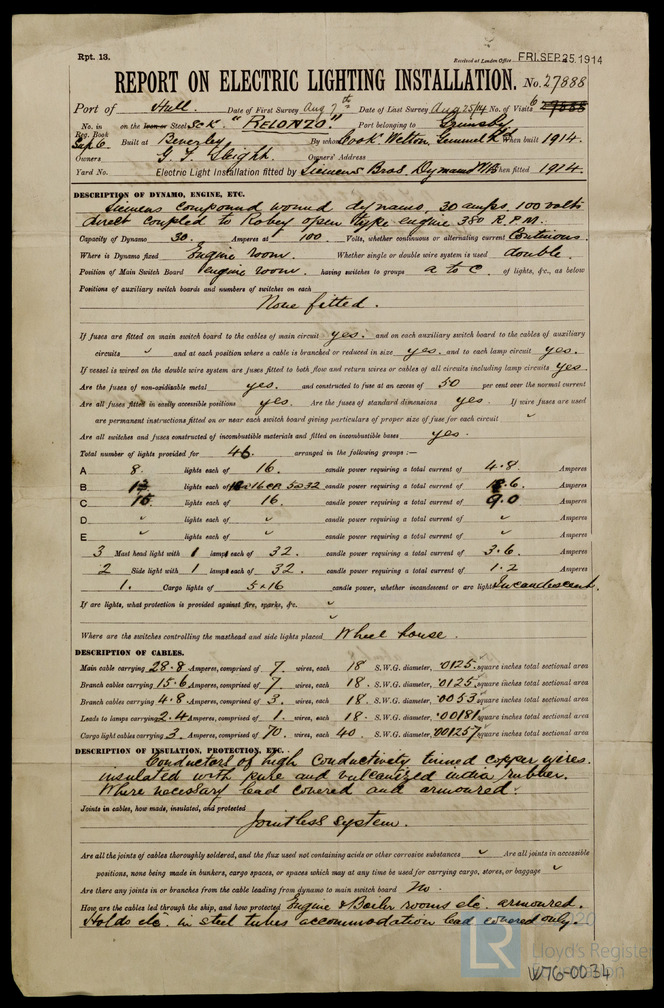 Rpt. 13.
Received at London Office FRI. SEP. 25. 1914
REPORT ON ELECTRIC LIGHTING INSTALLATION. No. 27888
Port of Hull. Date of First Survey Aug 7th Date of Last Survey Aug 25/14 No. of Visits 6
No. in Reg. Book on the Iron or Steel "BELONZO." Port belonging to Grimsby
Sup 6 Built at Beverley By whom Cook, Welton, Gemmell Ltd When built 1914.
Owners G. F. Sleight. Owners' Address
Yard No. Electric Light Installation fitted by Siemens Bros Dynamo Wks When fitted 1914.
DESCRIPTION OF DYNAMO, ENGINE, ETC.
Siemens compound wound dynamo, 30 amps, 100 volts
direct coupled to Robey open type engine 380 R.P.M.
Capacity of Dynamo 30. Amperes at 100. Volts, whether continuous or alternating current Continous.
Where is Dynamo fixed Engine room. Whether single or double wire system is used double.
Position of Main Switch Board engine room. having switches to groups a to c. of lights, &c., as below
Positions of auxiliary switch boards and numbers of switches on each
None fitted.
If fuses are fitted on main switch board to the cables of main circuit yes. and on each auxiliary switch board to the cables of auxiliary
circuits " and at each position where a cable is branched or reduced in size yes. and to each lamp circuit yes.
If vessel is wired on the double wire system are fuses fitted to both flow and return wires or cables of all circuits including lamp circuits yes
Are the fuses of non-oxidisable metal yes. and constructed to fuse at an excess of 50 per cent over the normal current
Are all fuses fitted in easily accessible positions yes. Are the fuses of standard dimensions yes. If wire fuses are used
are permanent instructions fitted on or near each switch board giving particulars of proper size of fuse for each circuit "
Are all switches and fuses constructed of incombustible materials and fitted on incombustible bases yes.
Total number of lights provided for 46. arranged in the following groups :—
A 8. lights each of 16. candle power requiring a total current of 4.8. Amperes
B lights each of 16 CP. 5 @ 32 candle power requiring a total current of Amperes
C 15. lights each of 16 candle power requiring a total current of 9.0 Amperes
D " lights each of " candle power requiring a total current of " Amperes
E " lights each of " candle power requiring a total current of " Amperes
3 Mast head light with 1 lamps each of 32. candle power requiring a total current of 3.6. Amperes
2 Side light with 1 lamps each of 32. candle power requiring a total current of 1.2 Amperes
1. Cargo lights of 5 x 16 candle power, whether incandescent or arc lights Incandescent.
If arc lights, what protection is provided against fire, sparks, &c. "
"
Where are the switches controlling the masthead and side lights placed Wheel house.
DESCRIPTION OF CABLES.
Main cable carrying 28.8 Amperes, comprised of 7. wires, each 18 S.W.G. diameter, .0125. square inches total sectional area
Branch cables carrying 15.6 Amperes, comprised of 7 wires, each 18. S.W.G. diameter, .0125. square inches total sectional area
Branch cables carrying 4.8 Amperes, comprised of 3. wires, each 18. S.W.G. diameter, .0053 square inches total sectional area
Leads to lamps carrying 2.4 Amperes, comprised of 1. wires, each 18. S.W.G. diameter, .00181 square inches total sectional area
Cargo light cables carrying 3. Amperes, comprised of 70. wires, each 40. S.W.G. diameter, .001257 square inches total sectional area
DESCRIPTION OF INSULATION, PROTECTION, ETC.
Conductors of high conductivity tinned copper wires.
insulated with pure and vulcanized india rubber.
Where necessary lead covered and armoured.
Joints in cables, how made, insulated, and protected
Jointless system.
Are all the joints of cables thoroughly soldered, and the flux used not containing acids or other corrosive substances " Are all joints in accessible
positions, none being made in bunkers, cargo spaces, or spaces which may at any time be used for carrying cargo, stores, or baggage "
Are there any joints in or branches from the cable leading from dynamo to main switch board No.
How are the cables led through the ship, and how protected Engine & Boiler rooms etc. armoured.
Holds etc. in steel tubes accommodation lead covered only.
LR
Lloyd's Register
Foundation
W76-0034